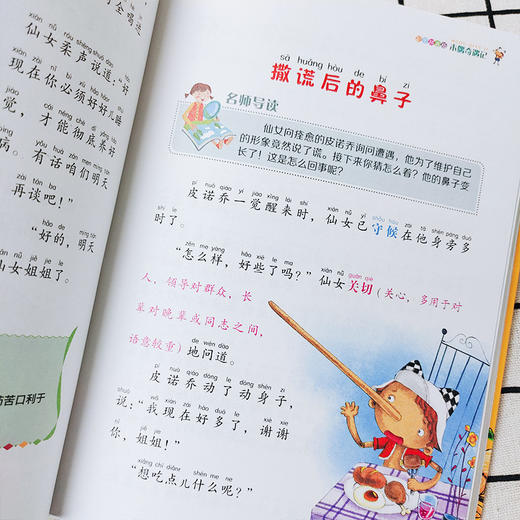 仙女柔声说道："好
现在你必须好好儿睡
觉，才能彻底养好
病。有话咱们明天
再谈吧！"
"好的，明天
仙女姐姐了。
苦口利于
小偶奇遇记
sā huǎng hòu de bí zi
撒谎后的鼻子
名师导读
仙女向痊愈的皮诺乔询问遭遇，他为了维护自己
的形象竟然说了谎。接下来你猜怎么着？他的鼻子变
长了！这是怎么回事呢？
pí nuò qiáo yí jiào xǐng lái shí xiān nǚ yǐ shǒu hòu zài tā shēn páng duō
皮诺乔一觉醒来时，仙女已守候在他身旁多
shí le
时了。
zěn me yàng hǎo xiē le ma xiān nǚ guān qiè
"怎么样，好些了吗？"仙女关切（关心，多用于对
人，领导对群众，长
辈对晚辈或同志之间，
de wèn dào
语意较重）地问道。
pí nuò qiáo dòng le dòng shēn zi
皮诺乔动了动身子，
shuō wǒ xiàn zài hǎo duō le xiè xie
说："我现在好多了，谢谢
nǐ jiě jie
你，姐姐！"
xiǎng chī diǎnr shén me ne
"想吃点儿什么呢？"